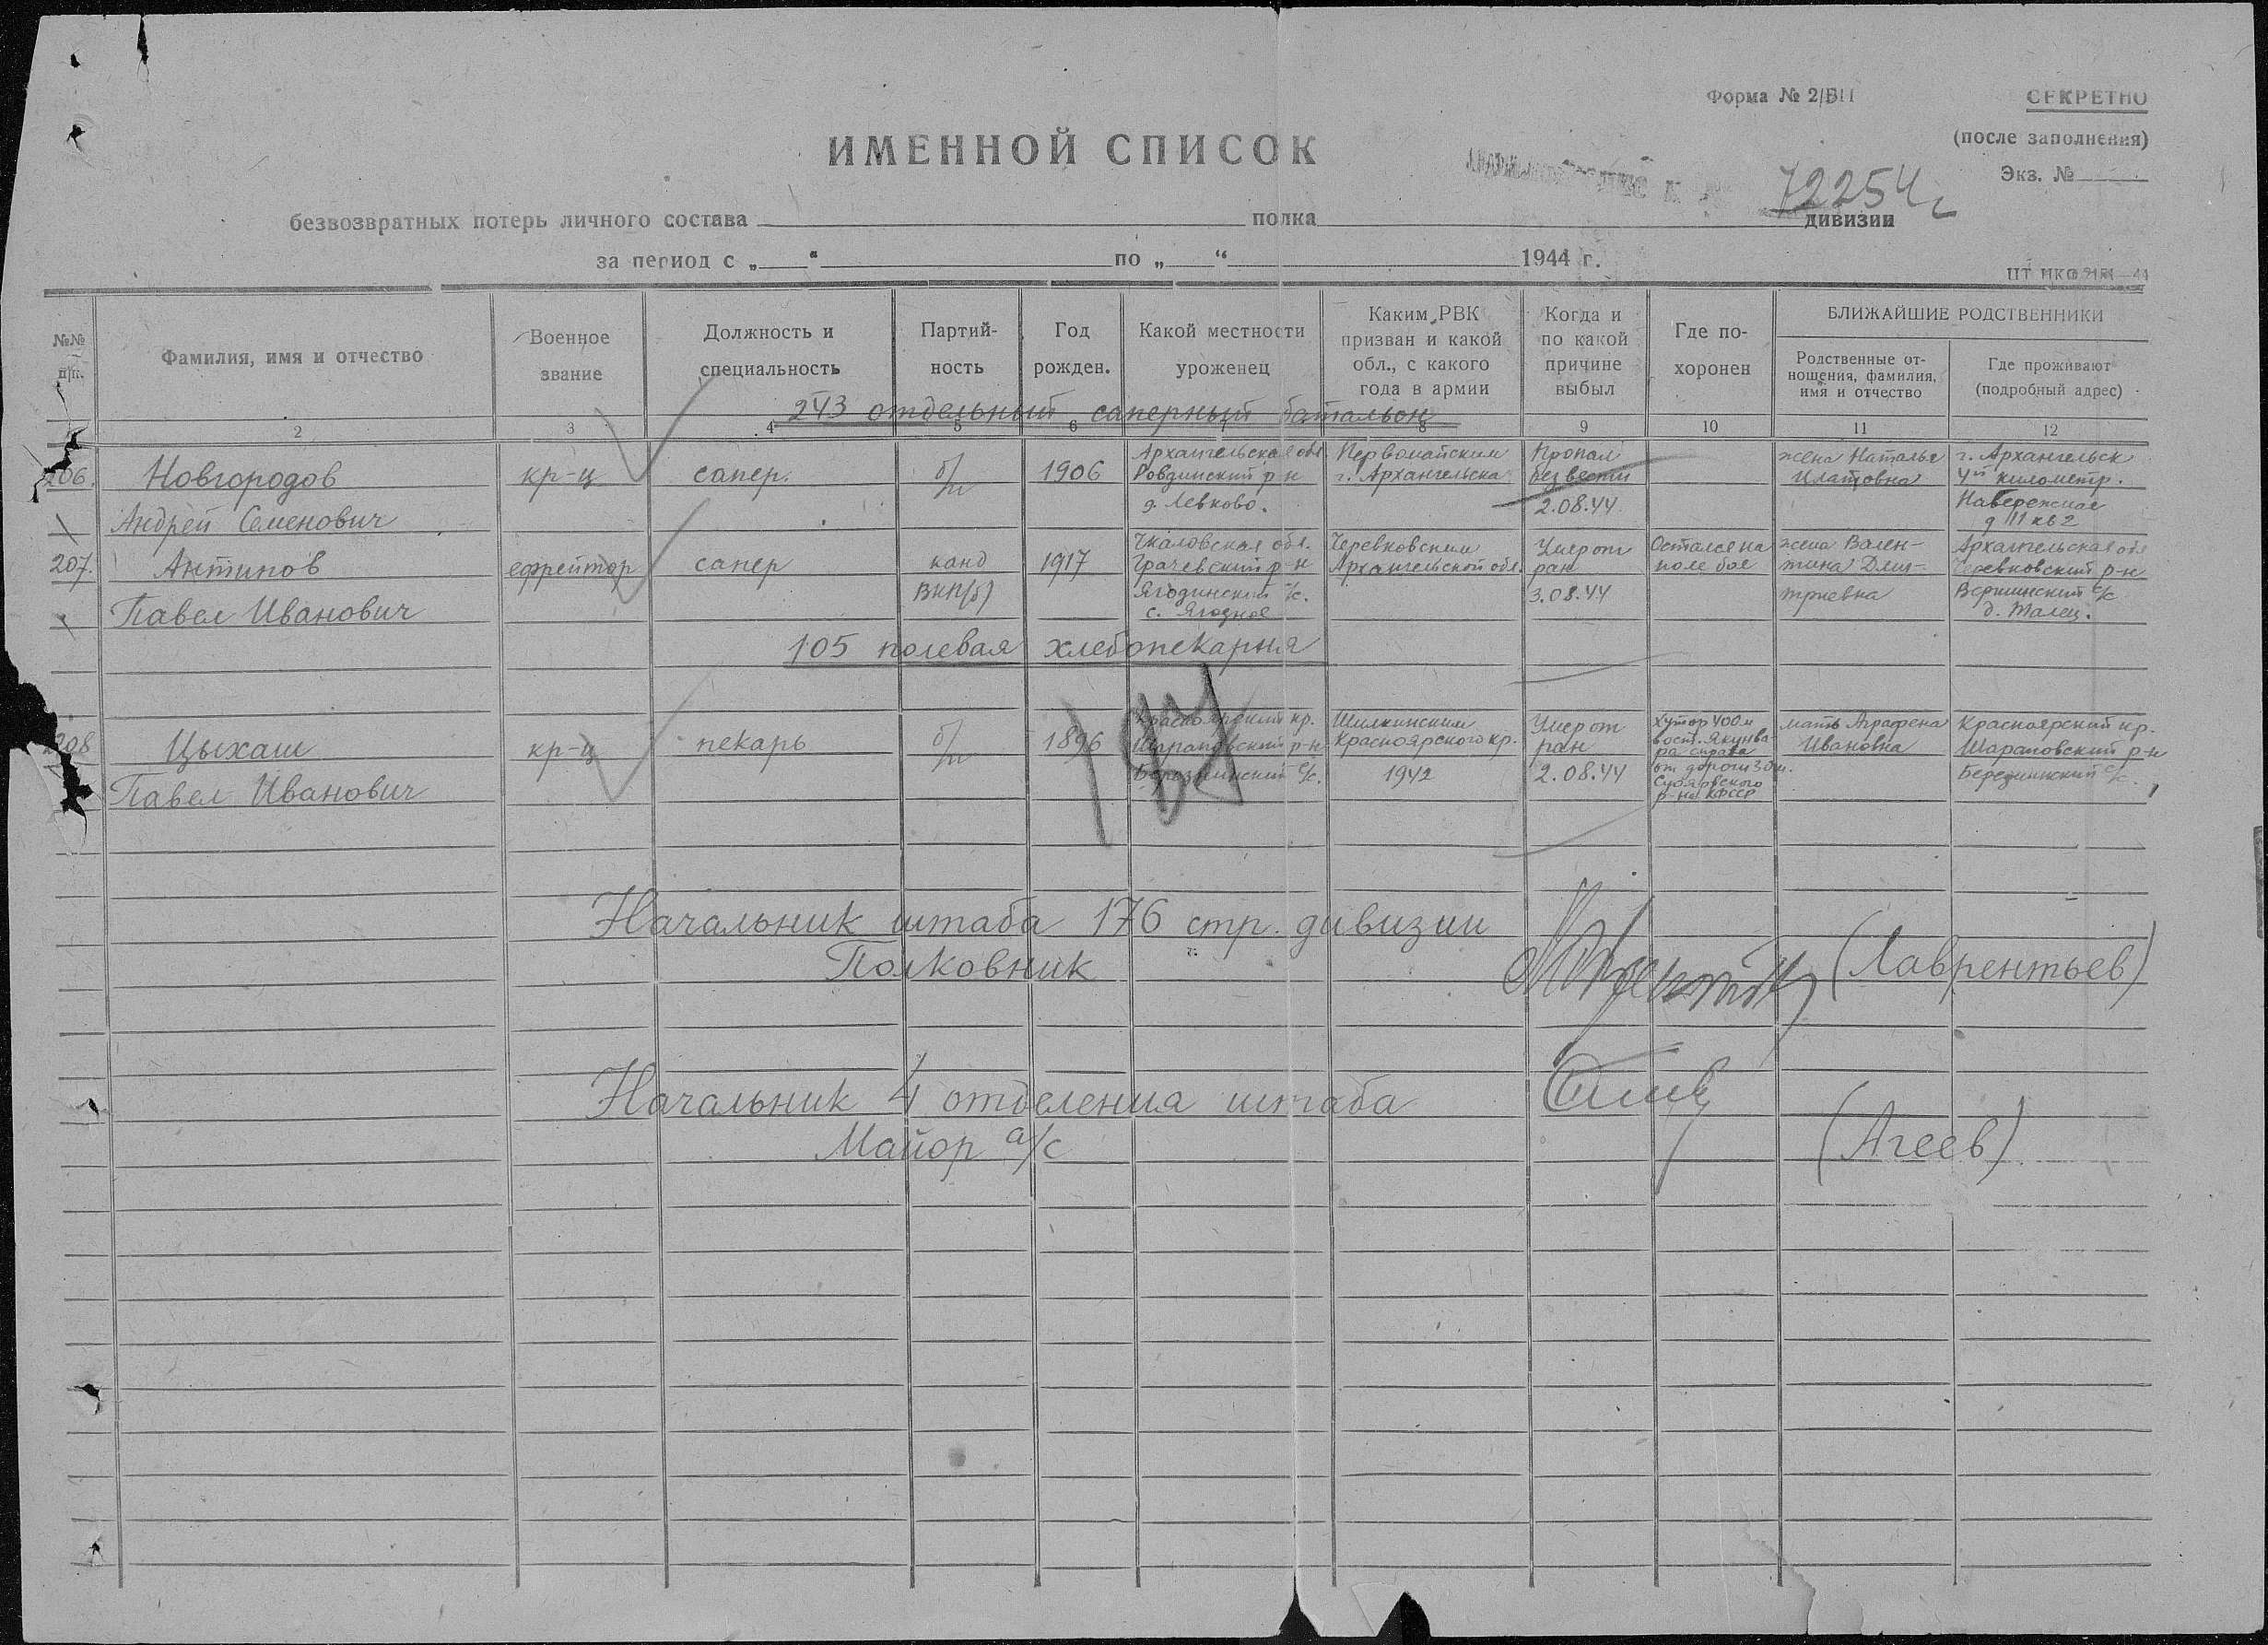 Форма № 2/БП
СЕКРЕТНО
(после заполнения)
Экз. №
ИМЕННОЙ СПИСОК
72254с
безвозвратных потерь личного состава полка дивизии
за период с „ “ по „ “ 1944 г.
№№ п/п.
Фамилия, имя и отчество
Военное звание
Должность и специальность
Партий-ность
Год рожден.
Какой местности уроженец
Каким РВК призван и какой обл., с какого года в армии
Когда и по какой причине выбыл
Где по-хоронен
БЛИЖАЙШИЕ РОДСТВЕННИКИ
Родственные от-ношения, фамилия, имя и отчество
Где проживают (подробный адрес)
2 3 4 5 6 7 8 9 10 11 12
243 отдельный саперный батальон
206. Новгородов Андрей Семенович
кр-ц
сапер.
б/п
1906
Архангельская обл
Ровдинский р-н
д. Левково.
Первомайским
г. Архангельска
Пропал
без вести
2.08.44
жена Наталья
г. Архангельск
4й километр.
Набережная
д 111 кв 2
207. Антипов Павел Иванович
ефрейтор
сапер
канд
ВКП(б)
1917
Чкаловская обл.
Грачевский р-н
Ягодинский с/с.
с. Ягодное
Черевковским
Архангельской обл.
Умер от
ран
3.08.44
Остался на
поле боя
жена Вален-
тина Дми-
триевна
Архангельская обл
Черевковский р-н
Вершинский с/с
д. Талец.
105 полевая хлебопекарня
208 Цыхаш Павел Иванович
кр-ц
пекарь
б/п
1896
Красноярский кр.
Шараповский р-н
с/с.
Красноярского кр.
1942
Умер от
ран
2.08.44
Хутор 400 м
вост. Якунва-
ра справа
от дороги 30 м.
Суоярвского
р-на КФССР
мать Аграфена
Ивановна
Красноярский кр.
Шараповский р-н
с/с.
Начальник штаба 176 стр. дивизии
Полковник
(Лаврентьев)
Начальник 4 отделения штаба
Майор а/с
(Агеев)